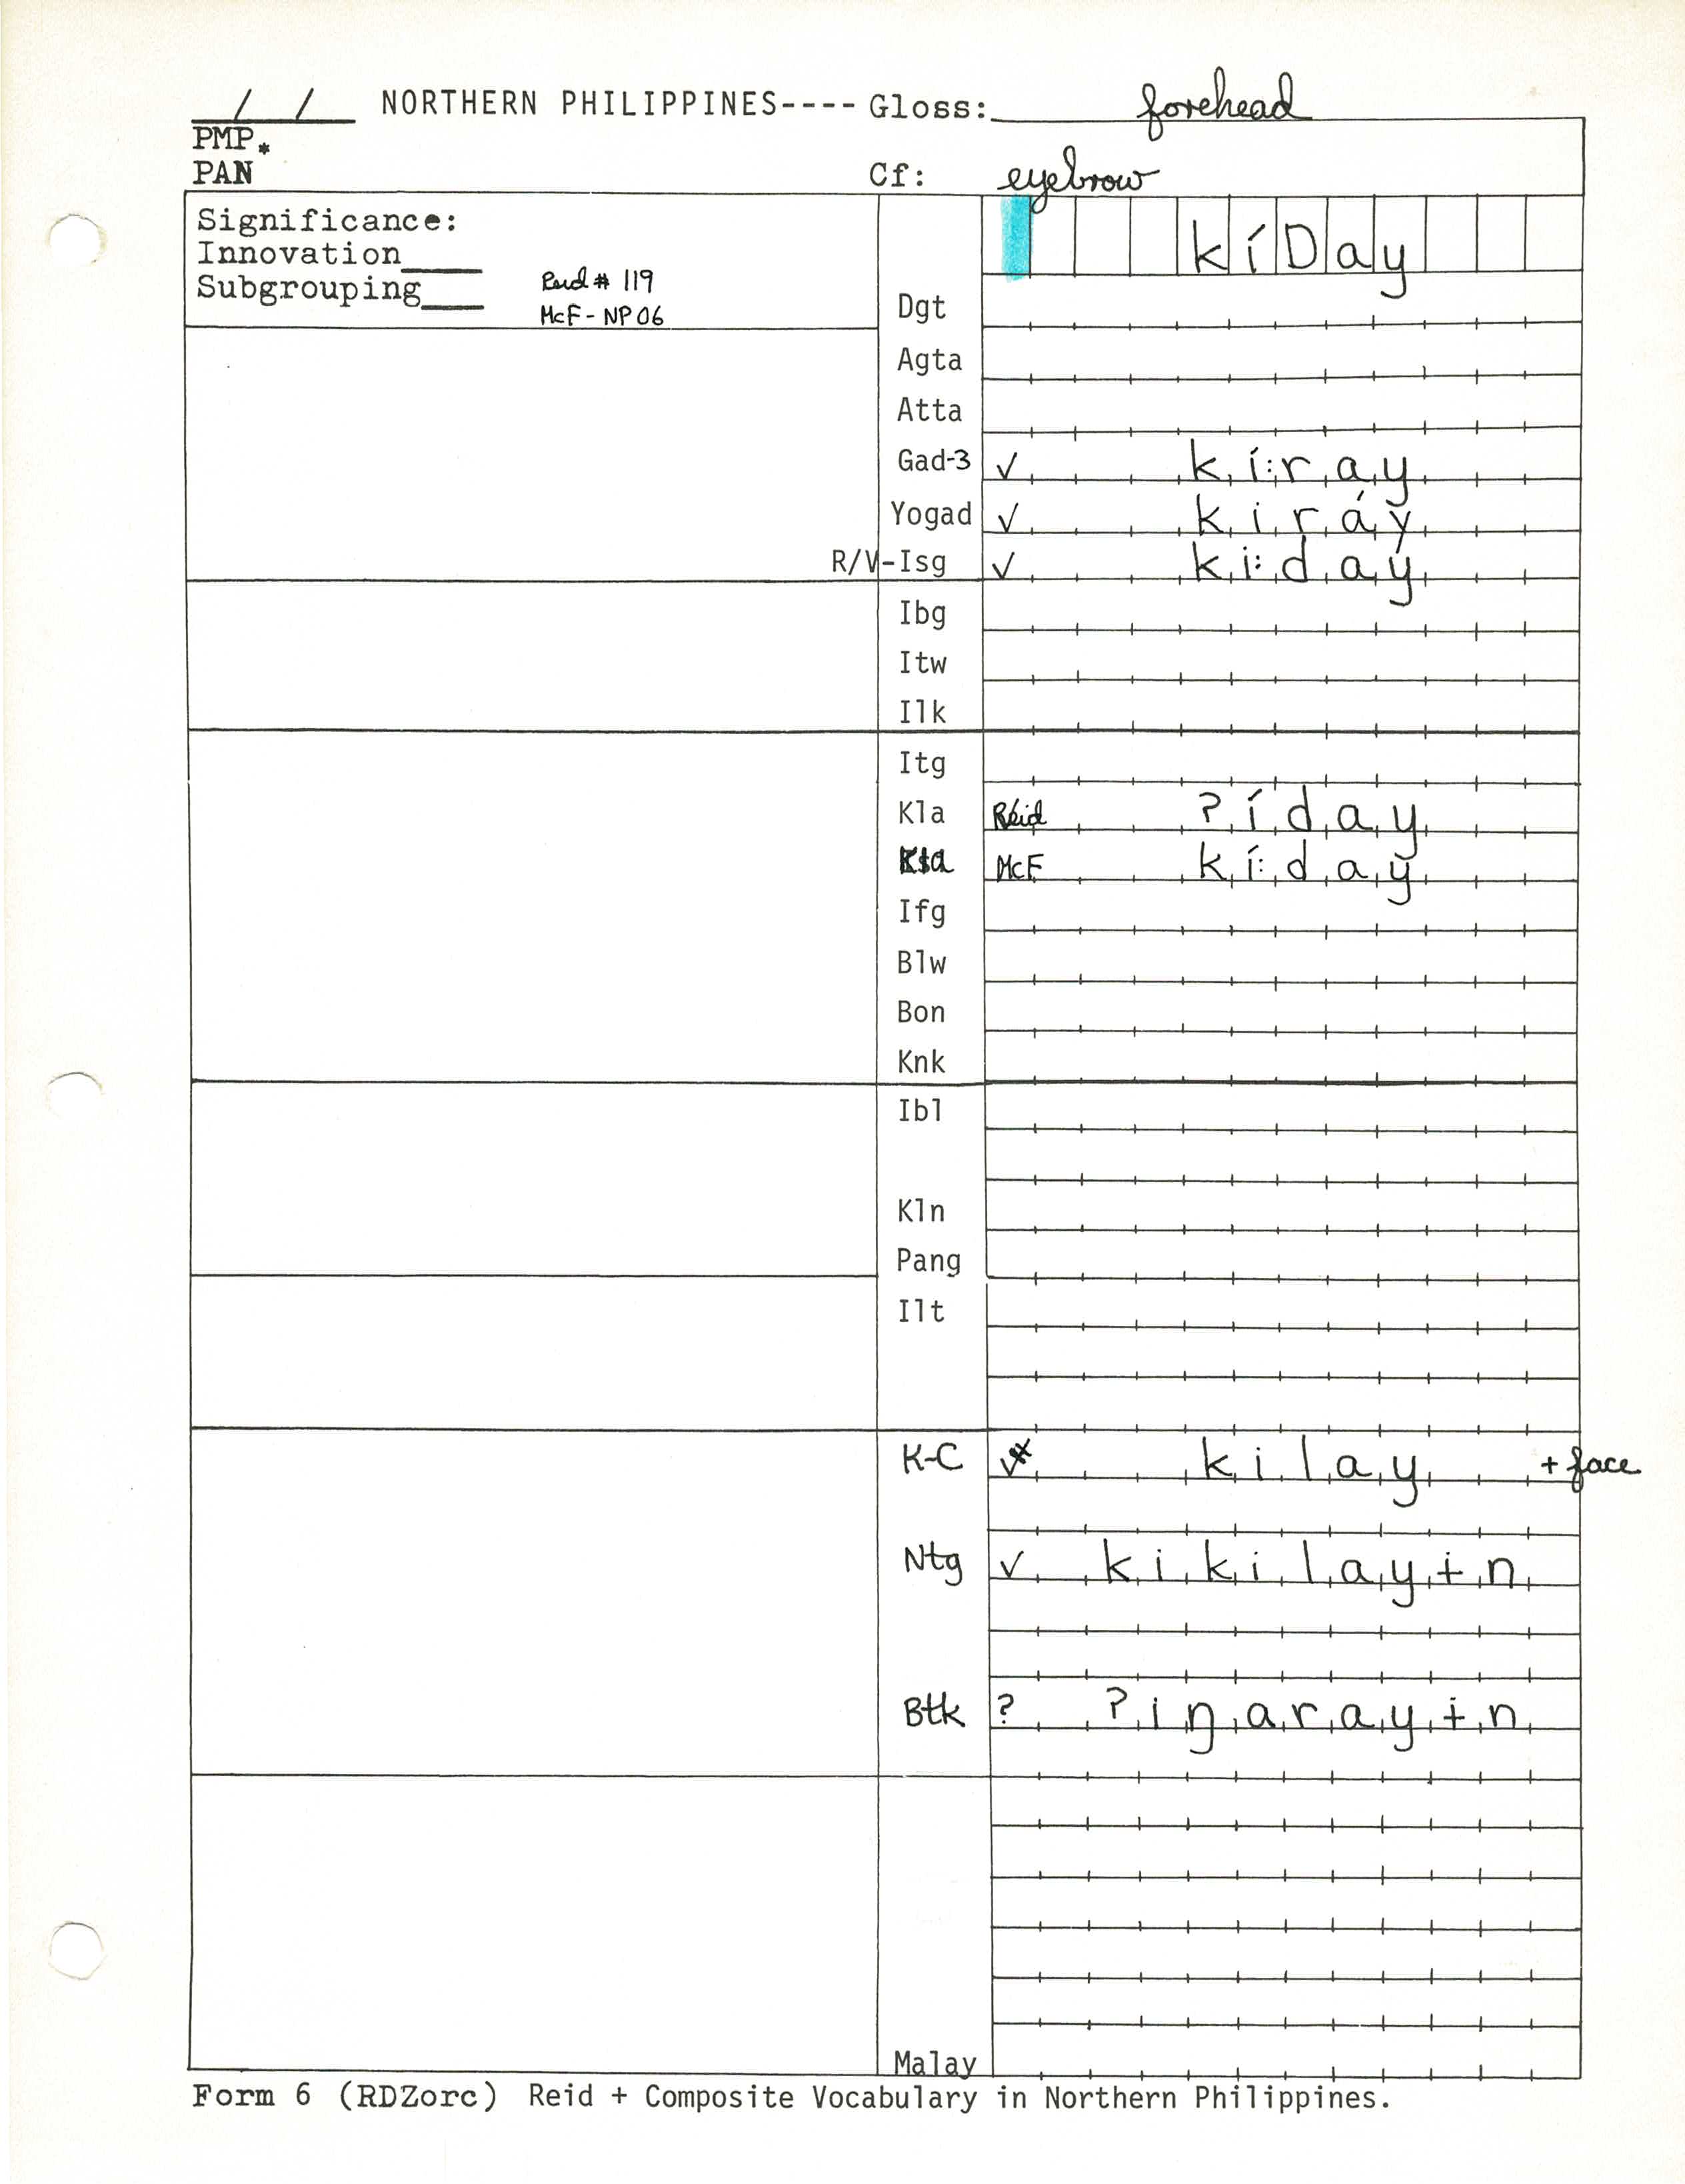 / / NORTHERN PHILIPPINES---- Gloss: forehead
PMP*
PAN Cf: eyebrow
Significance:
Innovation____
Subgrouping____
Reid # 119
McF - NP06
kíDay
Dgt
Agta
Atta
Gad-3 ✓ kí:ray
Yogad ✓ kiráy
R/V-Isg ✓ ki:day
Ibg
Itw
Ilk
Itg
Kla Reid ʔíday
Kla McF kí:day
Ifg
Blw
Bon
Knk
Ibl
Kln
Pang
Ilt
K-C ✓* kilay + face
Ntg ✓ kikilayɨn
Btk ? ʔiŋarayɨn
Malay
Form 6 (RDZorc) Reid + Composite Vocabulary in Northern Philippines.